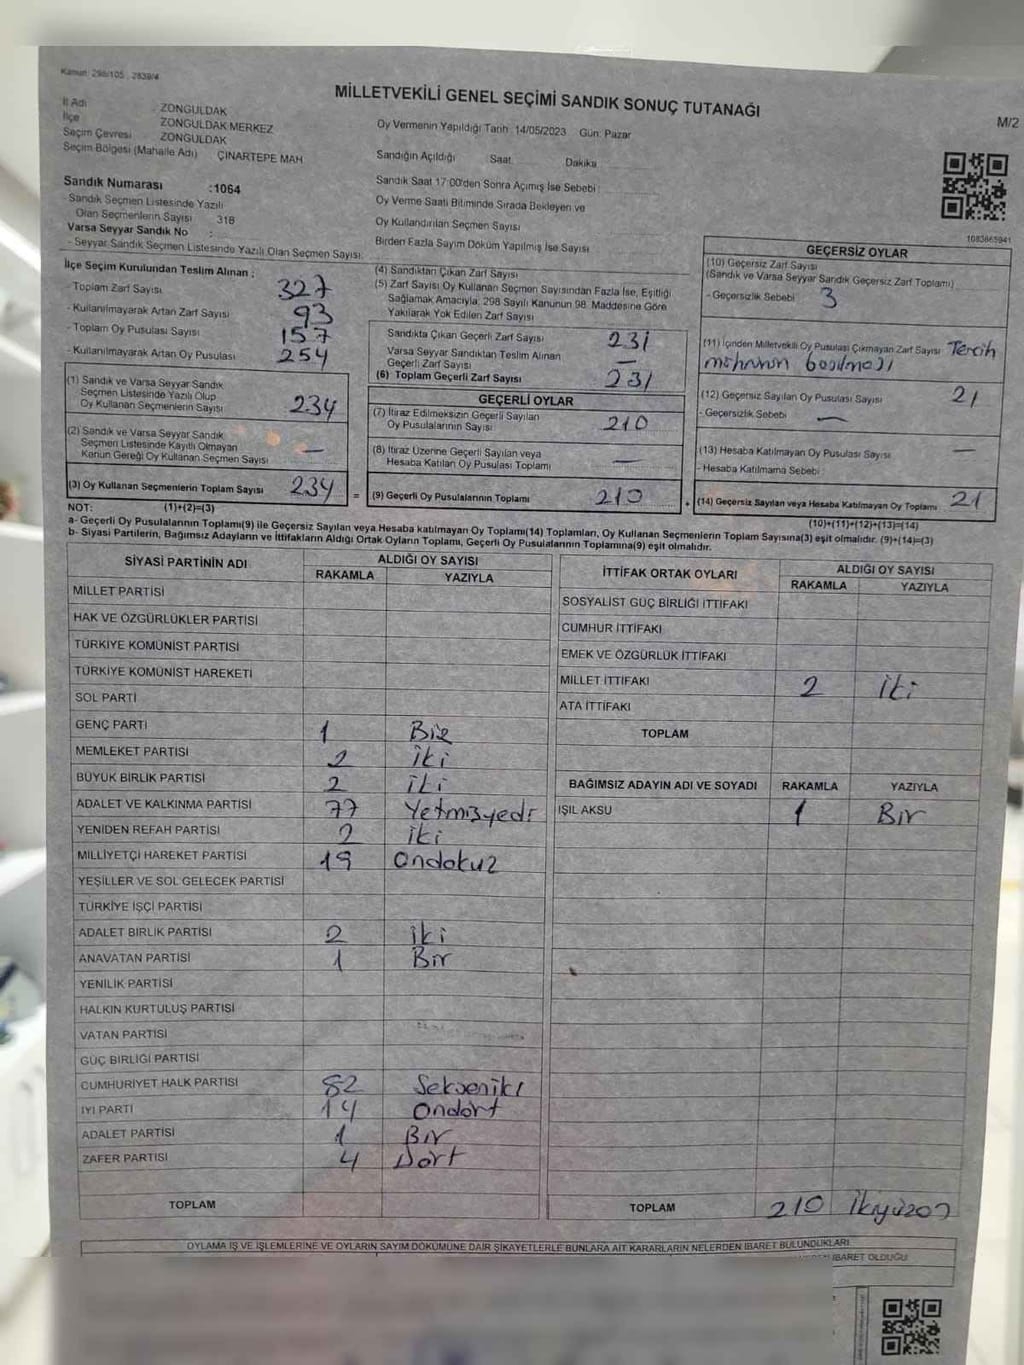 Kanun: 298/105 , 2839/4
MİLLETVEKİLİ GENEL SEÇİMİ SANDIK SONUÇ TUTANAĞI
M/2
İl Adı : ZONGULDAK
İlçe : ZONGULDAK MERKEZ
Seçim Çevresi : ZONGULDAK
Seçim Bölgesi (Mahalle Adı) : ÇINARTEPE MAH
Oy Vermenin Yapıldığı Tarih: 14/05/2023 Gün: Pazar
Sandığın Açıldığı Saat: Dakika
Sandık Numarası :1064
- Sandık Seçmen Listesinde Yazılı
Olan Seçmenlerin Sayısı : 318
Varsa Seyyar Sandık No :
- Seyyar Sandık Seçmen Listesinde Yazılı Olan Seçmen Sayısı:
Sandık Saat 17:00'den Sonra Açımış İse Sebebi :
Oy Verme Saati Bitiminde Sırada Bekleyen ve
Oy Kullandırılan Seçmen Sayısı
Birden Fazla Sayım Döküm Yapılmış İse Sayısı
1083865941
İlçe Seçim Kurulundan Teslim Alınan :
Toplam Zarf Sayısı 327
- Kullanılmayarak Artan Zarf Sayısı 93
- Toplam Oy Pusulası Sayısı 157
- Kullanılmayarak Artan Oy Pusulası 254
(1) Sandık ve Varsa Seyyar Sandık
Seçmen Listesinde Yazılı Olup
Oy Kullanan Seçmenlerin Sayısı 234
(2) Sandık ve Varsa Seyyar Sandık
Seçmen Listesinde Kayıtlı Olmayan
Kanun Gereği Oy Kullanan Seçmen Sayısı —
(3) Oy Kullanan Seçmenlerin Toplam Sayısı 234
(4) Sandıktan Çıkan Zarf Sayısı
(5) Zarf Sayısı Oy Kullanan Seçmen Sayısından Fazla İse, Eşitliği
Sağlamak Amacıyla, 298 Sayılı Kanunun 98. Maddesine Göre
Yakılarak Yok Edilen Zarf Sayısı
Sandıkta Çıkan Geçerli Zarf Sayısı 231
Varsa Seyyar Sandıktan Teslim Alınan
Geçerli Zarf Sayısı —
(6) Toplam Geçerli Zarf Sayısı 231
GEÇERLİ OYLAR
(7) İtiraz Edilmeksizin Geçerli Sayılan
Oy Pusulalarının Sayısı 210
(8) İtiraz Üzerine Geçerli Sayılan veya
Hesaba Katılan Oy Pusulası Toplamı —
= (9) Geçerli Oy Pusulalarının Toplamı 210
GEÇERSİZ OYLAR
(10) Geçersiz Zarf Sayısı
(Sandık ve Varsa Seyyar Sandık Geçersiz Zarf Toplamı)
- Geçersizlik Sebebi 3
(11) İçinden Milletvekili Oy Pusulası Çıkmayan Zarf Sayısı Tercih
mührünün basılması
(12) Geçersiz Sayılan Oy Pusulası Sayısı 21
- Geçersizlik Sebebi —
(13) Hesaba Katılmayan Oy Pusulası Sayısı —
- Hesaba Katılmama Sebebi :
+ (14) Geçersiz Sayılan veya Hesaba Katılmayan Oy Toplamı 21
NOT: (1)+(2)=(3)
(10)+(11)+(12)+(13)=(14)
a- Geçerli Oy Pusulalarının Toplamı(9) ile Geçersiz Sayılan veya Hesaba Katılmayan Oy Toplamı(14) Toplamları, Oy Kullanan Seçmenlerin Toplam Sayısına(3) eşit olmalıdır. (9)+(14)=(3)
b- Siyasi Partilerin, Bağımsız Adayların ve İttifakların Aldığı Ortak Oyların Toplamı, Geçerli Oy Pusulalarının Toplamına(9) eşit olmalıdır.
SİYASİ PARTİNİN ADI ALDIĞI OY SAYISI
RAKAMLA YAZIYLA
MİLLET PARTİSİ
HAK VE ÖZGÜRLÜKLER PARTİSİ
TÜRKİYE KOMÜNİST PARTİSİ
TÜRKİYE KOMÜNİST HAREKETİ
SOL PARTİ
GENÇ PARTİ 1 Bir
MEMLEKET PARTİSİ 2 İki
BÜYÜK BİRLİK PARTİSİ 2 İki
ADALET VE KALKINMA PARTİSİ 77 Yetmişyedi
YENİDEN REFAH PARTİSİ 2 İki
MİLLİYETÇİ HAREKET PARTİSİ 19 Ondokuz
YEŞİLLER VE SOL GELECEK PARTİSİ
TÜRKİYE İŞÇİ PARTİSİ
ADALET BİRLİK PARTİSİ 2 İki
ANAVATAN PARTİSİ 1 Bir
YENİLİK PARTİSİ
HALKIN KURTULUŞ PARTİSİ
VATAN PARTİSİ
GÜÇ BİRLİĞİ PARTİSİ
CUMHURİYET HALK PARTİSİ 82 Sekseniki
İYİ PARTİ 14 Ondört
ADALET PARTİSİ 1 Bir
ZAFER PARTİSİ 4 Dört
TOPLAM
İTTİFAK ORTAK OYLARI ALDIĞI OY SAYISI
RAKAMLA YAZIYLA
SOSYALİST GÜÇ BİRLİĞİ İTTİFAKI
CUMHUR İTTİFAKI
EMEK VE ÖZGÜRLÜK İTTİFAKI
MİLLET İTTİFAKI 2 İki
ATA İTTİFAKI
TOPLAM
BAĞIMSIZ ADAYIN ADI VE SOYADI RAKAMLA YAZIYLA
IŞIL AKSU 1 Bir
TOPLAM 210 İkiyüzon
OYLAMA İŞ VE İŞLEMLERİNE VE OYLARIN SAYIM DÖKÜMÜNE DAİR ŞİKAYETLERLE BUNLARA AİT KARARLARIN NELERDEN İBARET BULUNDUKLARI
İBARET OLDUĞU